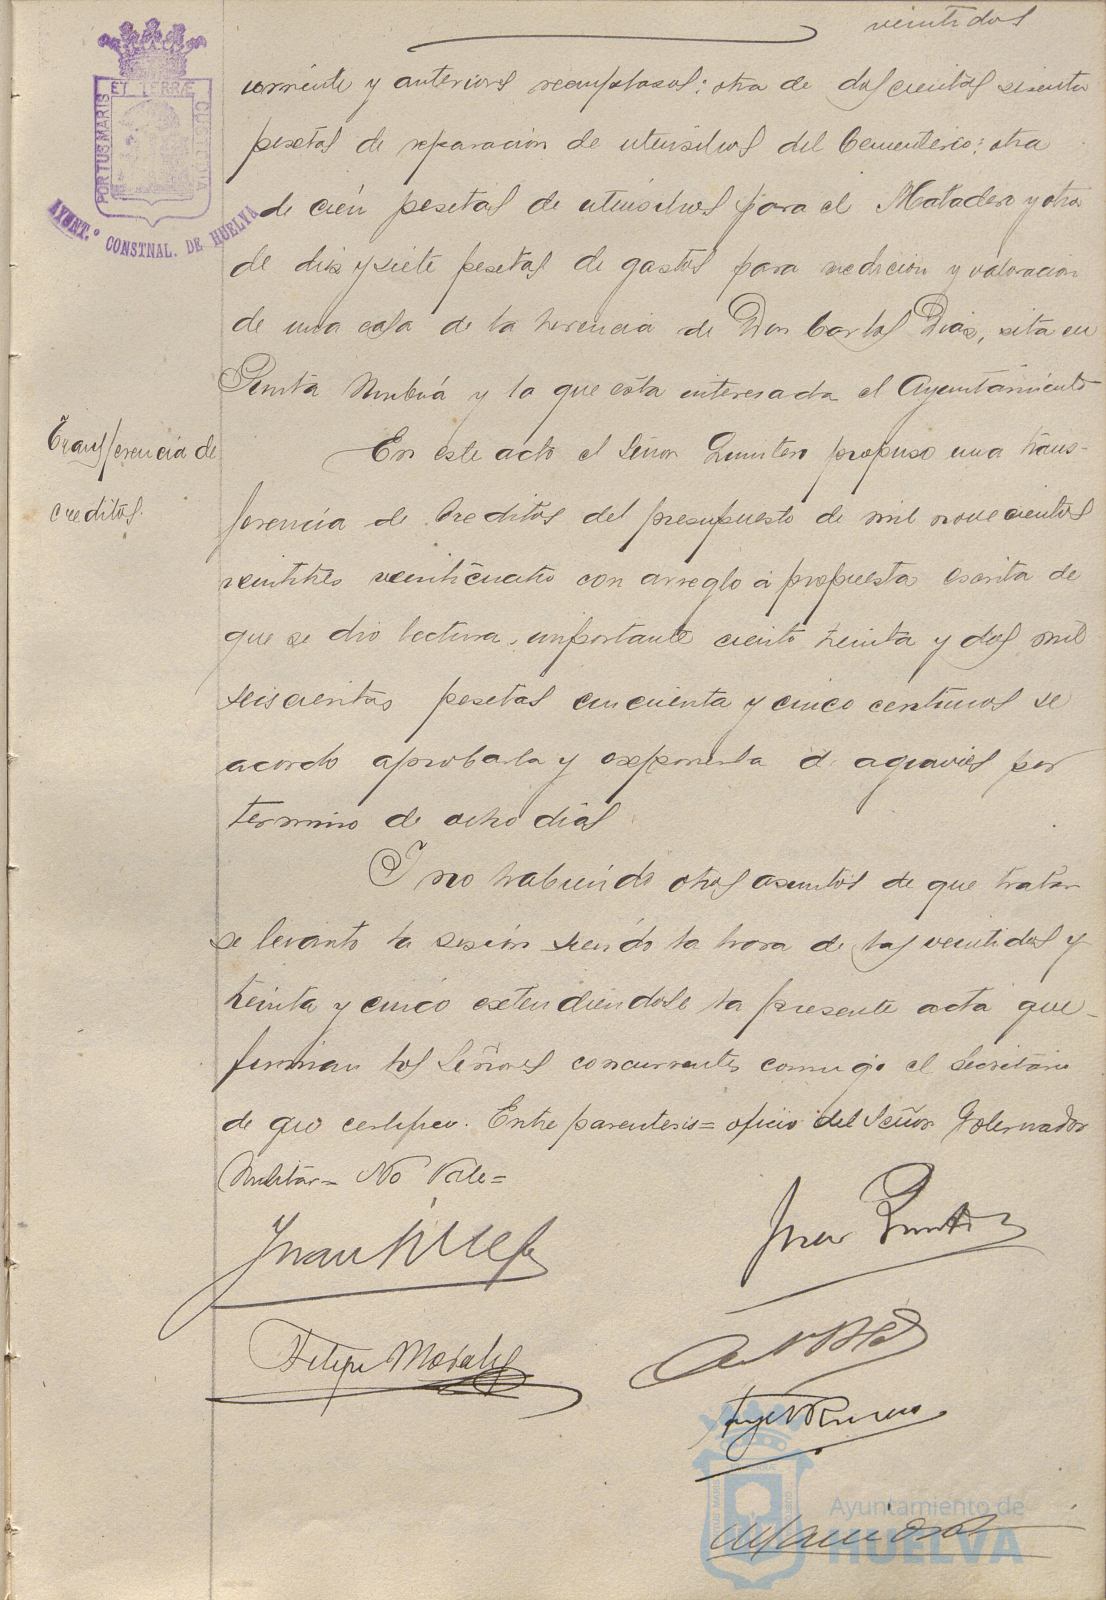 veintidos
PORTUS MARIS ET TERRÆ CUSTODIA
AYUNT.º CONSTNAL. DE HUELVA
corriente y anteriores reemplasos: otra de doscientas sesenta
pesetas de reparación de utensilios del Cementerio: otra
de cién pesetas de utensilios para el Matadero y otra
de dies y siete pesetas de gastos para medicion y valoracion
de una casa de la herencia de Don Carlos Dias, sita en
Punta Umbria y la que esta interesada el Ayuntamiento
Transferencia de
creditos.
En este acto el Señor Quintero propuso una trans-
ferencia de Creditos del presupuesto de mil novecientos
veintitres veinticuatro con arreglo á propuesta escrita de
que se dio lectura, importante ciento treinta y dos mil
seiscientas pesetas cincuenta y cinco centimos se
acordo aprobarla y exponerla á agravios por
termino de ocho dias
Y no habiendo otros asuntos de que tratar
se levanto la sesión siendo la hora de las veintidos y
treinta y cinco extendiendose la presente acta que
firman los Señores concurrentes conmigo el Secretario
de que certifico. Entre parentesis= oficio del Señor Gobernador
Militar= No Vale=
Juan
Juan Quintero
Felipe Morales
Ayuntamiento de
HUELVA